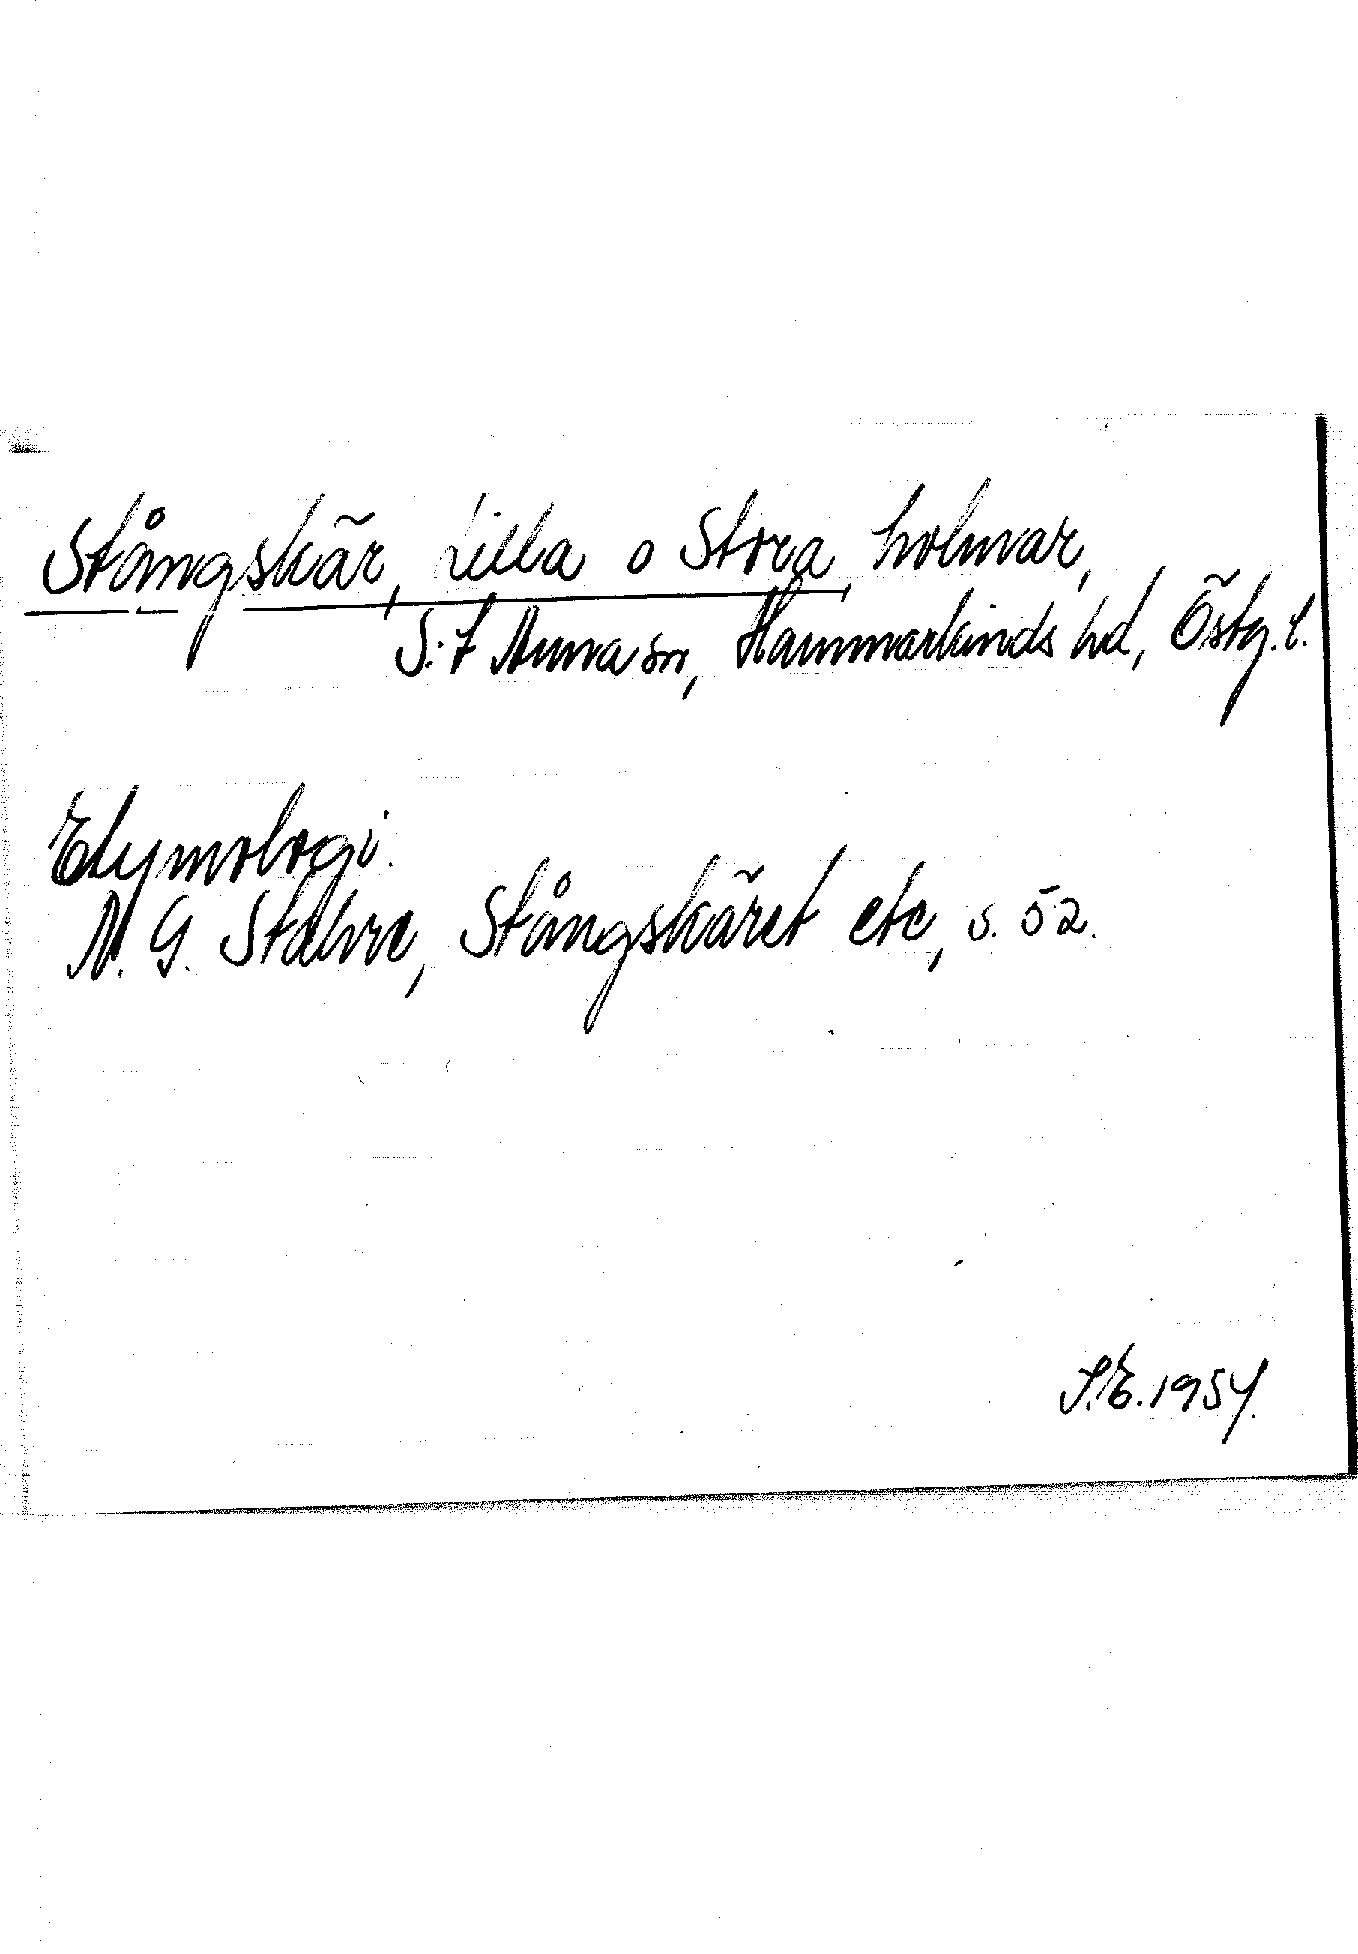 Stångskär, Lilla o Stora, holmar,
S:t Anna sn, Hammarkinds hd, Östg. l.
Etymologi.
N. G. Stahre, Stångskäret etc, s. 52.
S.E. 1954.